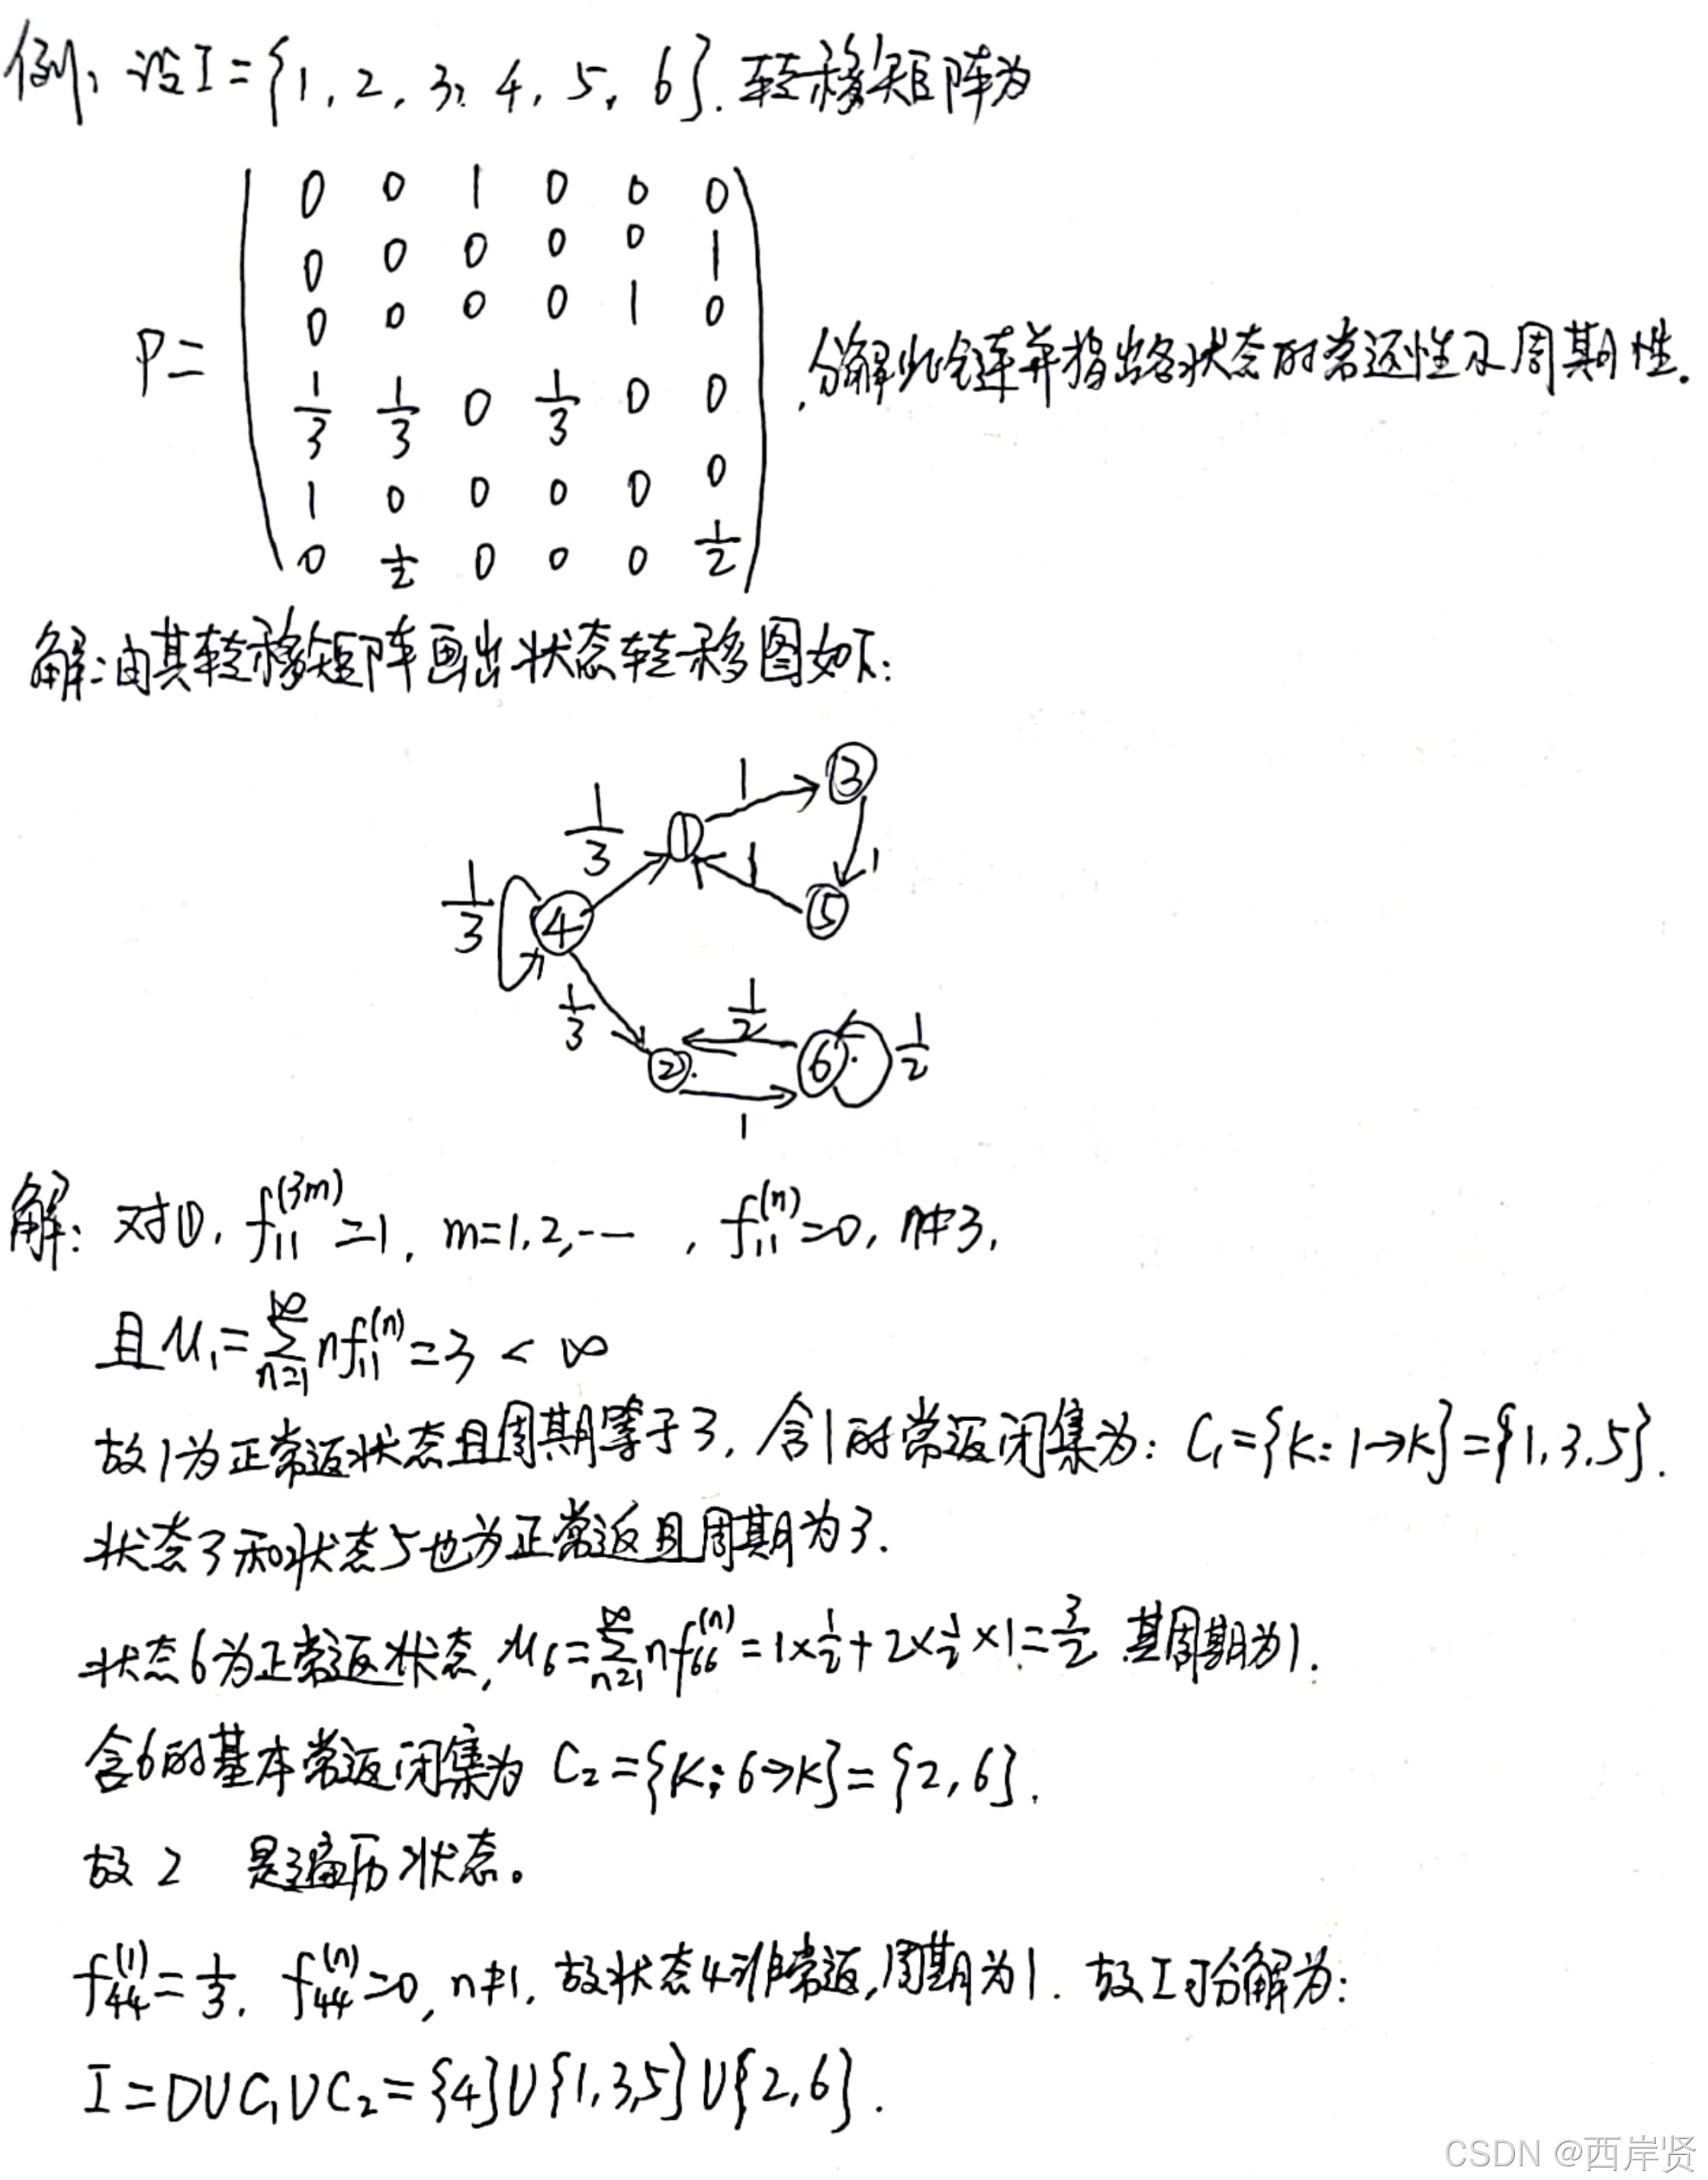 例, 设I={1, 2, 3, 4, 5, 6}. 转移矩阵为
P=
0 0 1 0 0 0
0 0 0 0 0 1
0 0 0 0 1 0
1/3 1/3 0 1/3 0 0
1 0 0 0 0 0
0 1/2 0 0 0 1/2
, 分解此链并指出各状态的常返性及周期性.
解:由其转移矩阵画出状态转移图如下:
1 ③
1/3 ① 1 1
1/3 ④ ⑤
1/3 1/2
② ⑥ 1/2
1
解: 对①, f₁₁^(3m)=1, m=1,2,--- , f₁₁^(n)=0, n≠3,
且μ₁=∑_{n=1}^∞ nf₁₁^(n)=3 < ∞
故1为正常返状态且周期等于3, 含1的常返闭集为: C₁={K: 1→K}={1,3,5}.
状态3和状态5也为正常返且周期为3.
状态6为正常返状态, μ₆=∑_{n=1}^∞ nf₆₆^(n)=1×1/2+2×1/2×1=3/2 其周期为1.
含6的基本常返闭集为 C₂={K: 6→K}={2, 6}.
故 2 是遍历状态。
f₄₄^(1)=1/3, f₄₄^(n)=0, n≠1, 故状态4非常返,周期为1. 故I可分解为:
I=D∪C₁∪C₂={4}∪{1,3,5}∪{2,6}.
CSDN @西岸贤